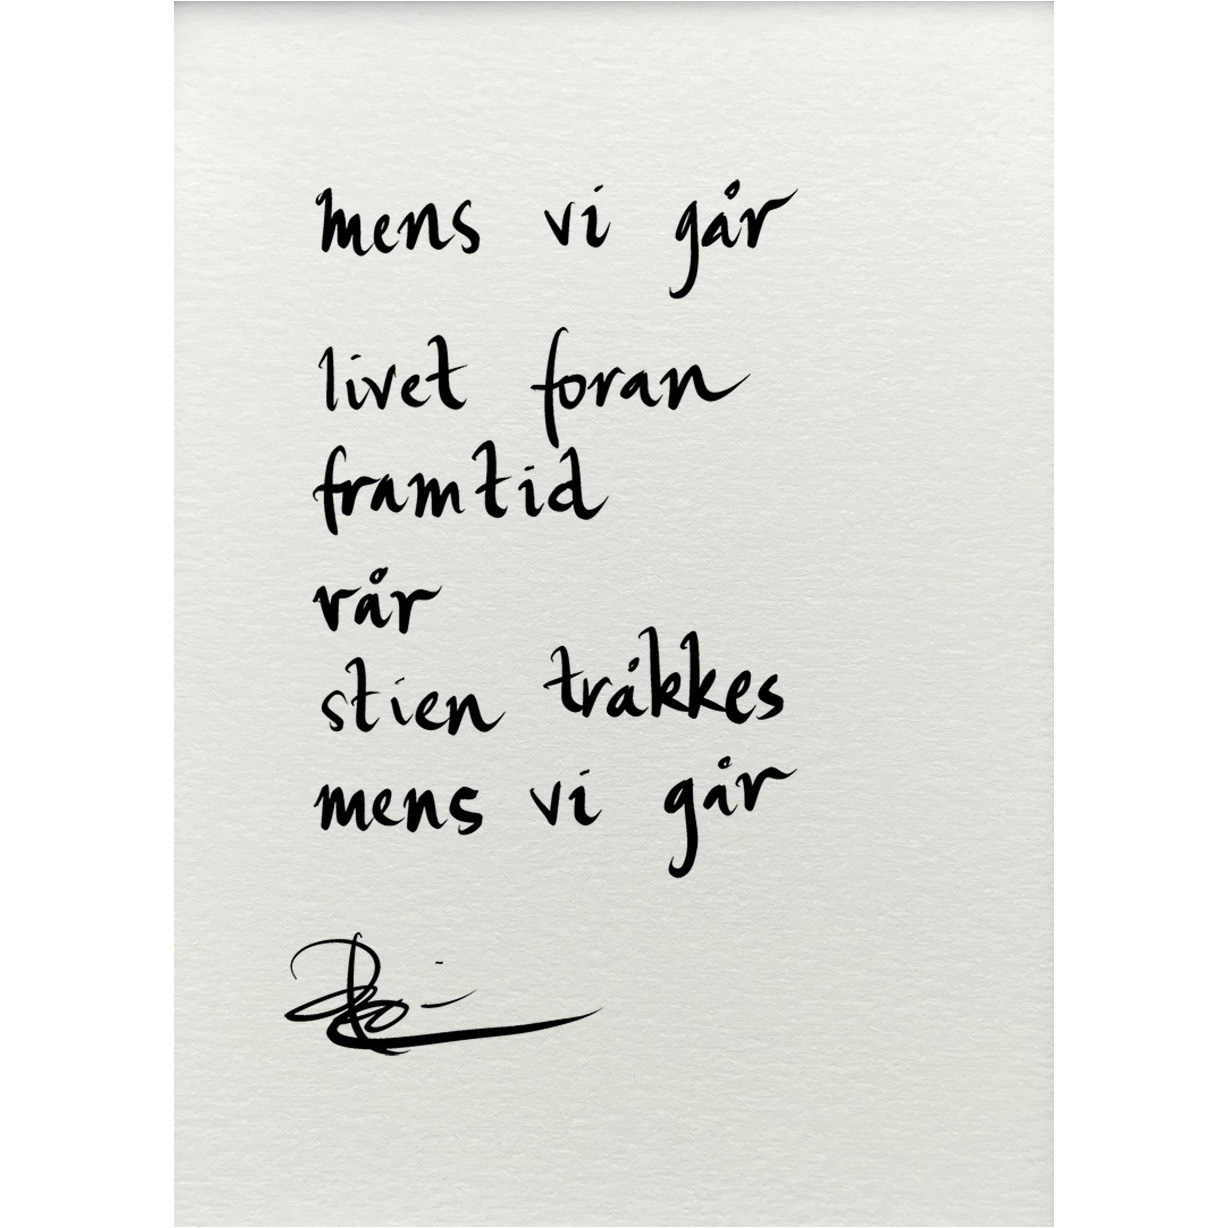 mens vi går
livet foran
framtid
vår
stien tråkkes
mens vi går